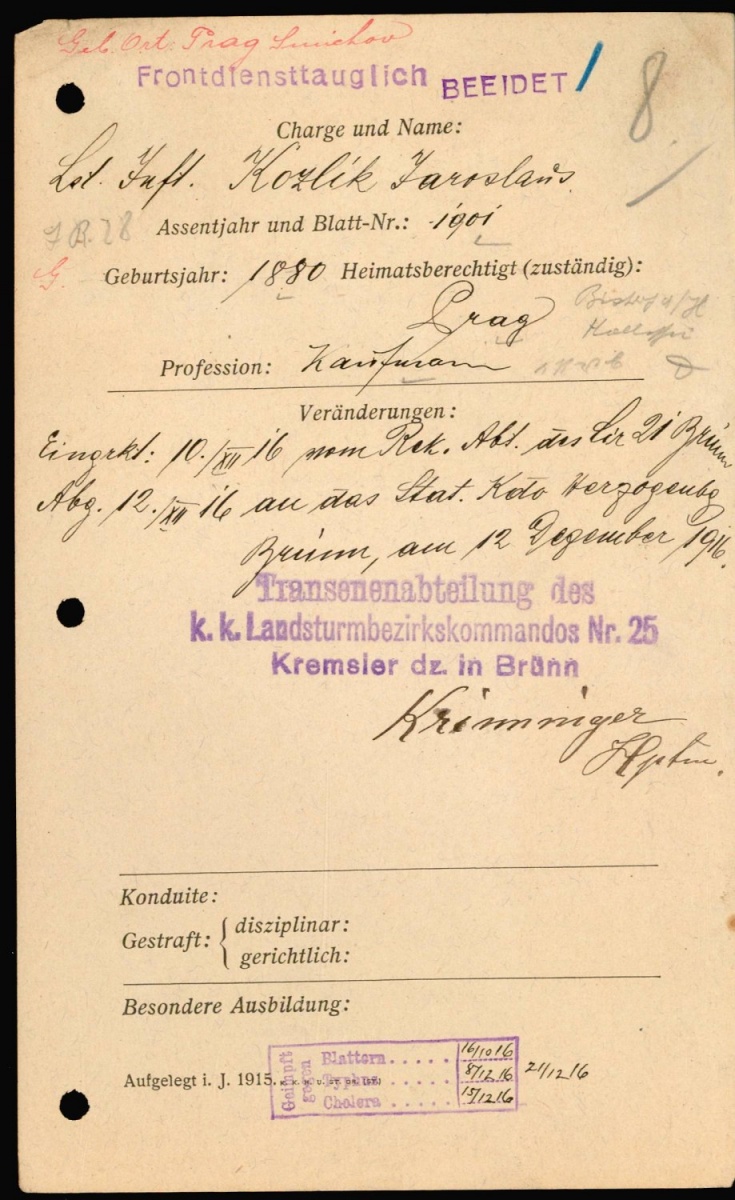 Geb. Ort: Prag Smichov
Frontdiensttauglich BEEIDET
8
Charge und Name:
Lst. Inft. Kozlik Jaroslaus
J R. 28
Assentjahr und Blatt-Nr.: 1901
G.
Geburtsjahr: 1880 Heimatsberechtigt (zuständig):
Prag
Profession: Kaufmann
Veränderungen:
Eingrkt: 10./XII 16 vom Rek. Abt. des Lir 21 Brünn
Abg. 12./XII 16 an das Stat. Kdo Herzogenbg
Brünn, am 12 Dezember 1916.
Transenenabteilung des
k. k. Landsturmbezirkskommandos Nr. 25
Kremsier dz. in Brünn
Krimminger
Hptm.
Konduite:
Gestraft: { disziplinar:
gerichtlich:
Besondere Ausbildung:
Geimpft gegen
Blattern..... 16/10 16
Aufgelegt i. J. 1915. Typhus..... 8/12 16 21/12 16
Cholera..... 15/12 16